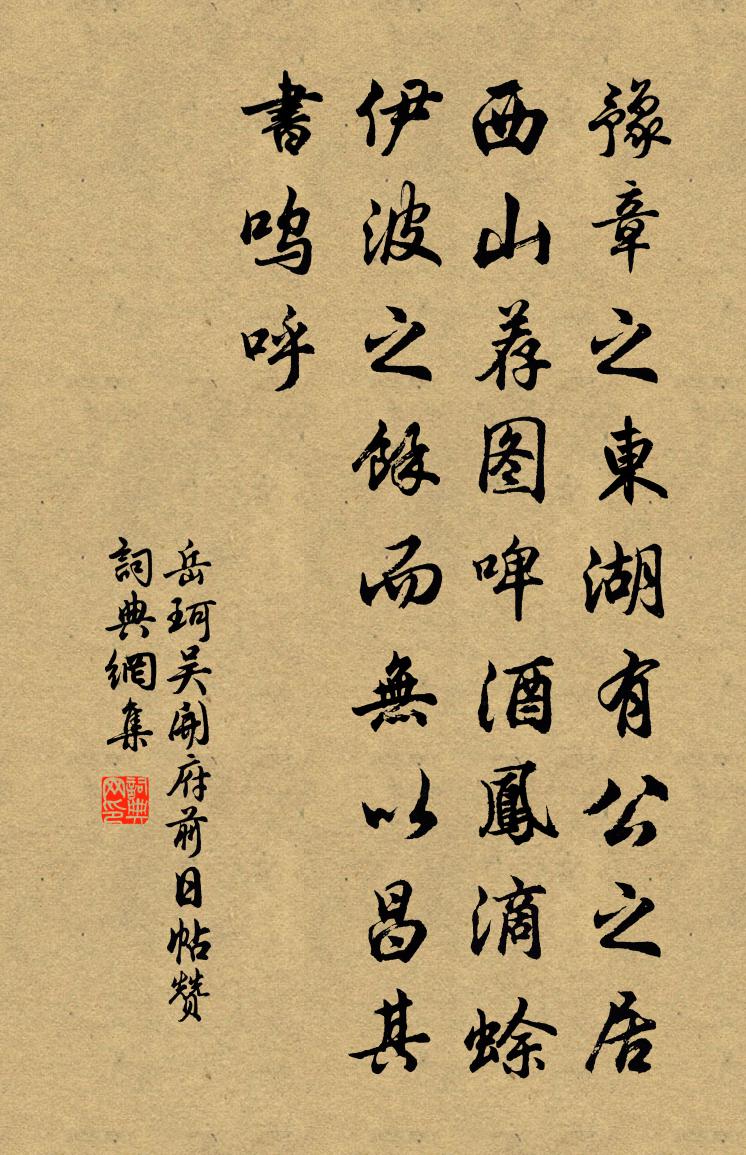 豫章之東湖有公之居
西山荐图啤酒鳳滴蜍
伊波之餘而無以昌其
書鸣呼
岳珂吴開府前日帖赞
詞典網集
詞典网印